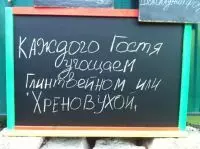 КАЖДОГО Гостя
угощаем
Глинтвейном или
"ХРЕНОВУХОЙ"